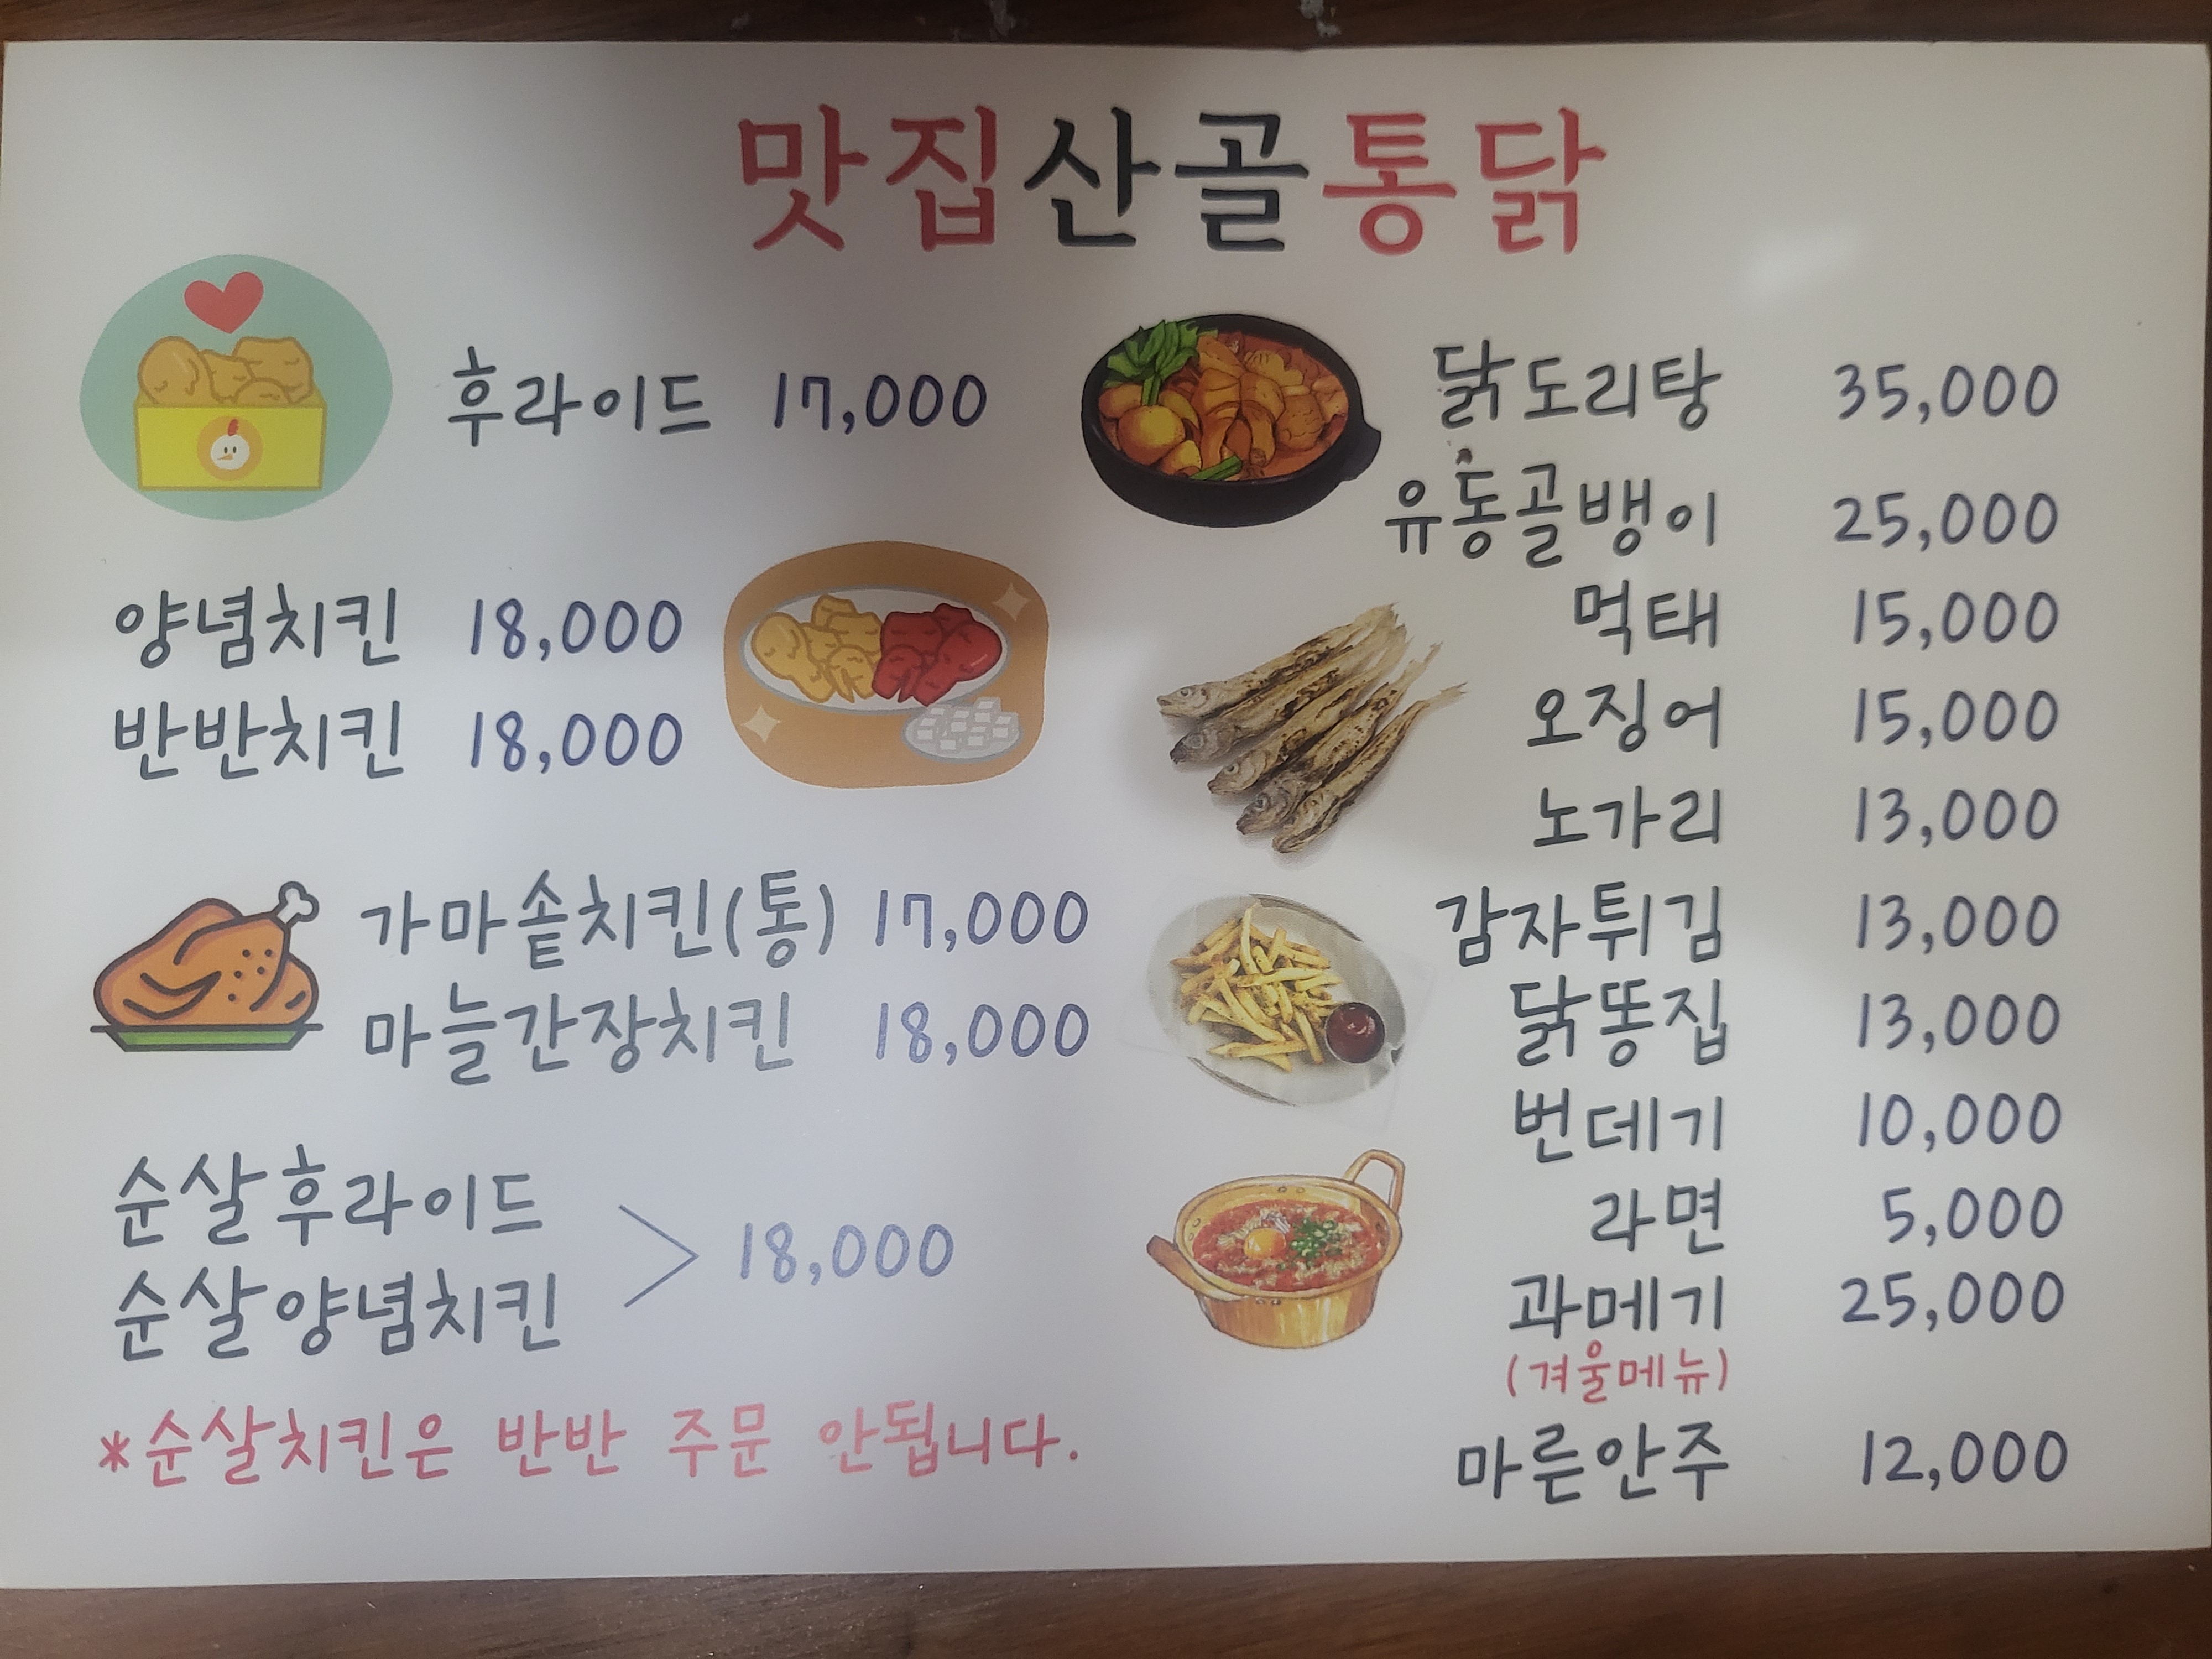 맛집산골통닭
후라이드 17,000
양념치킨 18,000
반반치킨 18,000
가마솥치킨(통) 17,000
마늘간장치킨 18,000
순살후라이드
순살양념치킨
> 18,000
*순살치킨은 반반 주문 안됩니다.
닭도리탕 35,000
유동골뱅이 25,000
먹태 15,000
오징어 15,000
노가리 13,000
감자튀김 13,000
닭똥집 13,000
번데기 10,000
라면 5,000
과메기 25,000
(겨울메뉴)
마른안주 12,000